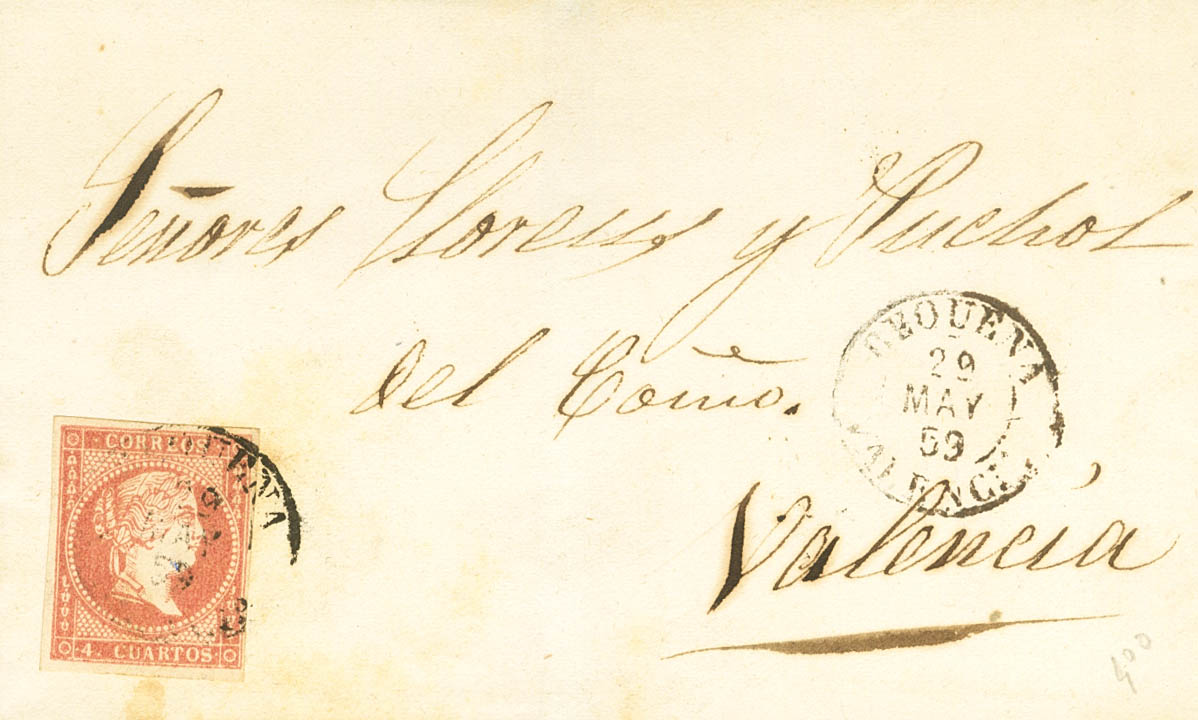 Señores Llorens y Puchol
del Comº.
REQUENA
29
MAY
59
VALENCIA
Valencia
CORREOS
4 CUARTOS
400